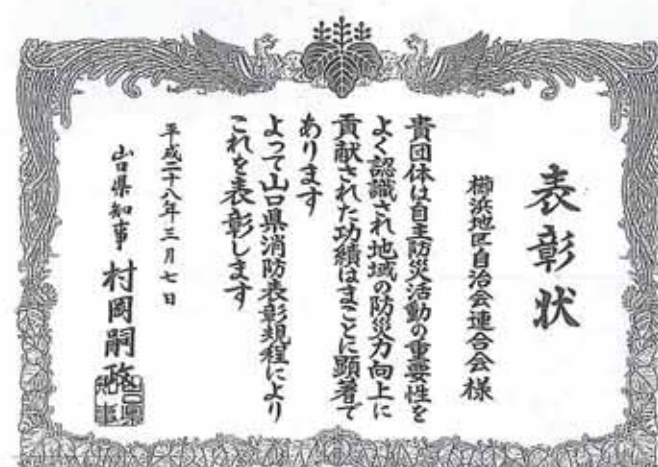 表彰状
櫛浜地区自治会連合会様
貴団体は自主防災活動の重要性を
よく認識され地域の防災力向上に
貢献された功績はまことに顕著で
あります
よって山口県消防表彰規程により
これを表彰します
平成二十八年三月七日
山口県知事 村岡嗣政